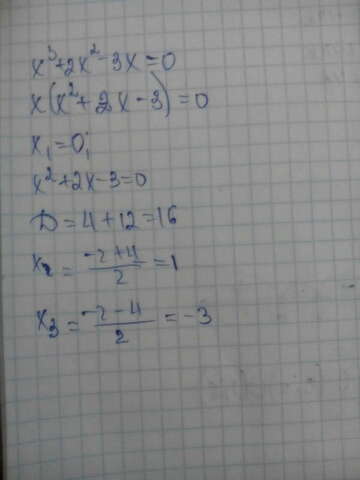 x³+2x²-3x=0
x(x²+2x-3)=0
x₁=0;
x²+2x-3=0
D=4+12=16
x₂=(-2+4)/2=1
x₃=(-2-4)/2=-3